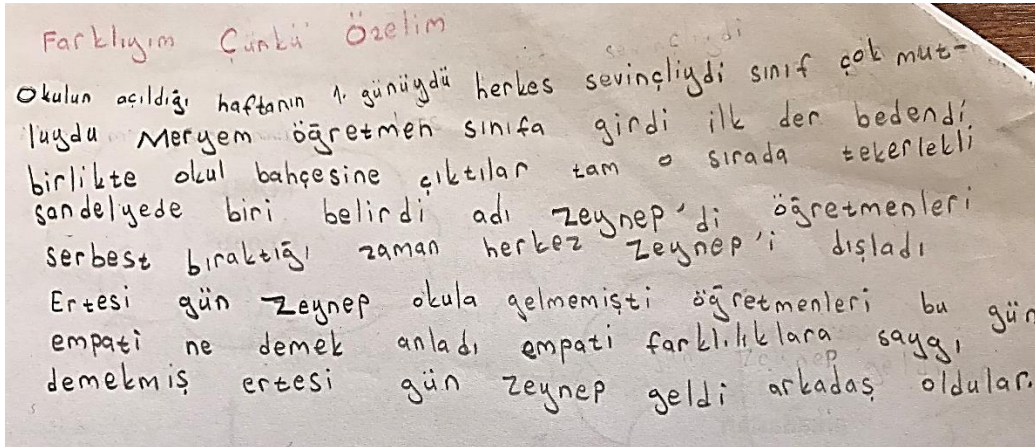 Farklıyım Çünkü Özelim
Okulun açıldığı haftanın 1. günüydü herkes sevinçliydi sınıf çok mut-
luydu Meryem öğretmen sınıfa girdi ilk der bedendi
birlikte okul bahçesine çıktılar tam o sırada tekerlekli
sandelyede biri belirdi adı Zeynep'di öğretmenleri
serbest bıraktığı zaman herkez Zeynep'i dışladı
Ertesi gün Zeynep okula gelmemişti öğretmenleri bu gün
empati ne demek anladı empati farklılıklara saygı
demekmiş ertesi gün Zeynep geldi arkadaş oldular.